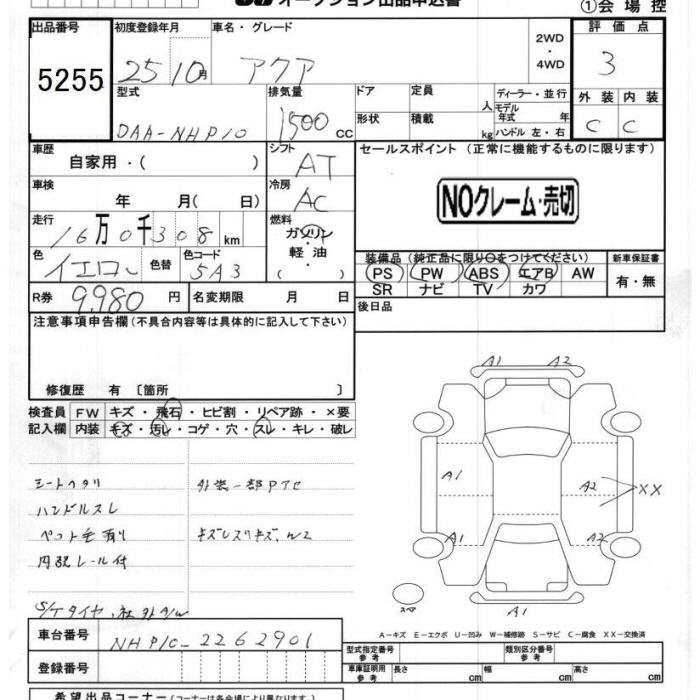 オークション出品申込書
①会場控
出品番号 初度登録年月 車名・グレード 2WD ・ 4WD 評価点
5255 25 10月 アクア 3
型式 排気量 ドア 定員 人 ディーラー・並行 外装 内装
DAA-NHP10 1500 CC 形状 積載 kg モデル年式 年式 ハンドル 左・右 C C
車歴 自家用・( ) シフト AT セールスポイント (正常に機能するものに限ります)
車検 年 月( 日) 冷房 AC NOクレーム・売切
走行 16万0千308km 燃料 ガソリン 軽油 ・( )
色 イエロー 色替 色コード 5A3 装備品 (純正品に限り○をつけてください) 新車保証書
PS PW ABS エアB AW 有・無
SR ナビ TV カワ
R券 9,980 円 名変期限 月 日 後日品
注意事項申告欄 (不具合内容等は具体的に記入して下さい)
修復歴 有 〔箇所 〕
検査員 FW キズ・飛石・ヒビ割・リペア跡・×要
記入欄 内装 キズ・汚レ・コゲ・穴・スレ・キレ・破レ
A1 A2
A1 A2 XX
A1 A2
A1
シートヘタリ 外装一部Pアセ
ハンドルスレ
ペット毛有り
円現レール付
スペア
A-キズ E-エクボ U-凹み W-補修跡 S-サビ C-腐食 XX-交換済
車台番号 NHP10-2262901
登録番号
型式指定番号 参考 類別区分番号 参考
車庫証明用 参考 長さ cm 幅 cm 高さ cm
希望出品コーナー (コーナーは各会場により異なります)